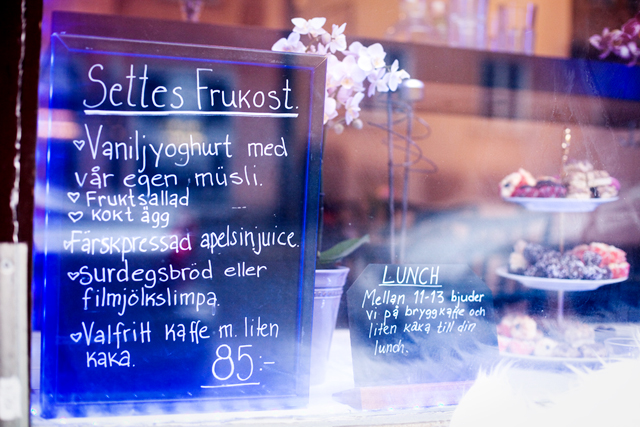 Settes Frukost.
Vaniljyoghurt med
vår egen müsli.
Fruktsallad
kokt ägg
Färskpressad apelsinjuice.
Surdegsbröd eller
filmjölkslimpa.
Valfritt kaffe m. liten
kaka.
85:-
LUNCH
Mellan 11-13 bjuder
vi på bryggkaffe och
liten kaka till din
lunch.